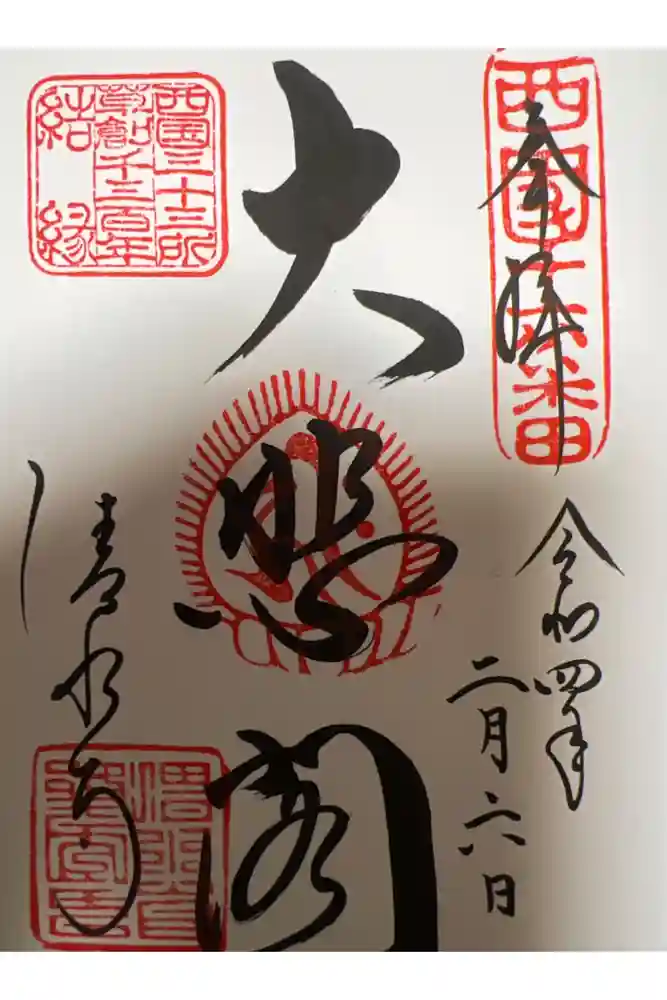 奉拝
西国十六番
令和四年
二月六日
大悲閣
西国三十三所
草創千三百年
結縁
清水寺